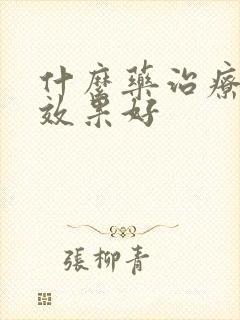 什麼藥治療
效果好
張柳青